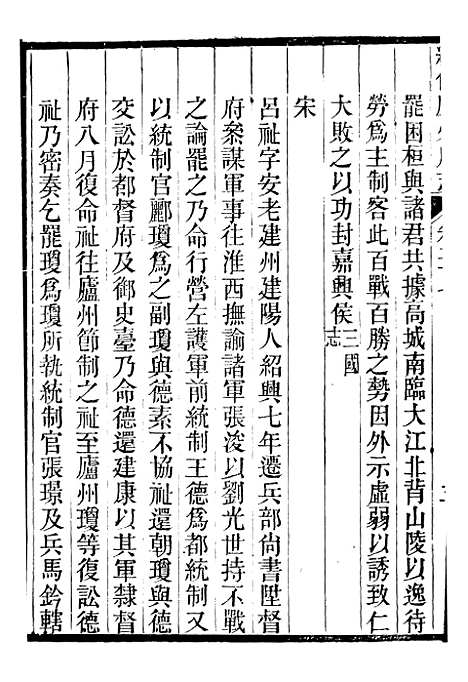 罷困桓與諸君共據高城南臨大江北背山陵以逸待
勞爲主制客此百戰百勝之勢因外示虛弱以誘致仁
大敗之以功封嘉興侯三國志
宋
呂祉字安老建州建陽人紹興七年遷兵部尚書陞督
府叅謀軍事往淮西撫諭諸軍張浚以劉光世持不戰
之論罷之乃命行營左護軍前統制王德爲都統制又
以統制官酈瓊爲之副瓊與德素不協祉還朝瓊與德
交訟於都督府及御史臺乃命德還建康以其軍隸督
府八月復命祉往廬州節制之祉至廬州瓊等復訟德
祉乃密奏乞罷瓊爲瓊所執統制官張璟及兵馬鈐轄